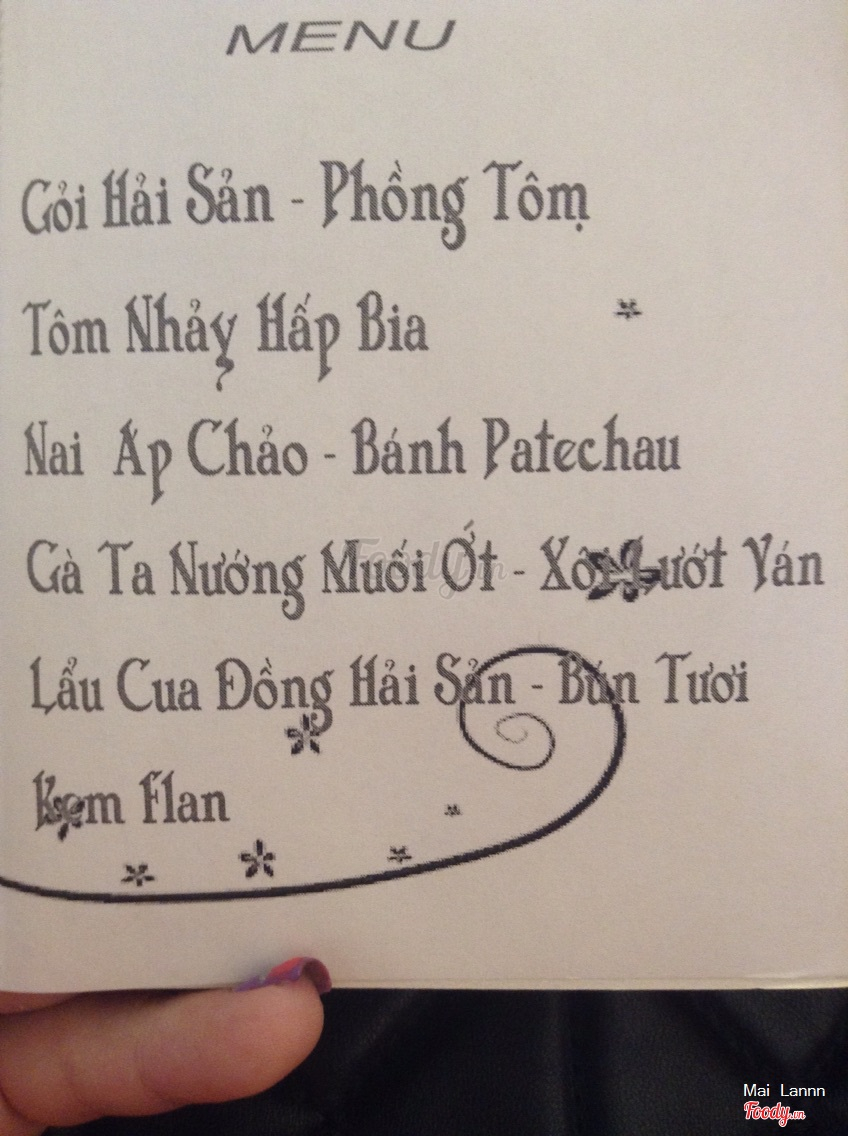 MENU
Gỏi Hải Sản - Phồng Tôm
Tôm Nhảy Hấp Bia
Nai Áp Chảo - Bánh Patechau
Gà Ta Nướng Muối Ớt - Xôi Lướt Ván
Lẩu Cua Đồng Hải Sản - Bún Tươi
Kem Flan
Foody.vn
Mai Lannn
Foody.vn